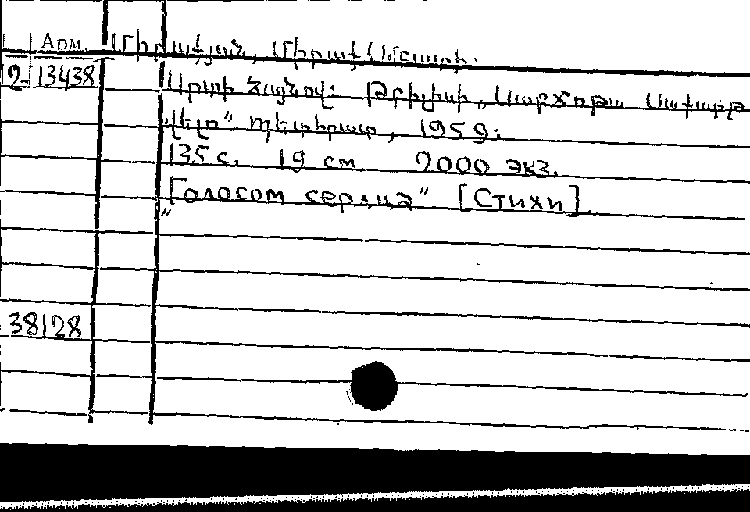 Арм. Միրաքյան, Միրաք Անտառի.
2-13438 Սրտի ձայնով: Թբիլիսի, „Սաբչոթա Սաքարթ
վելո" պետհրատ, 1959:
135 с. 19 см 2000 экз.
„Голосом сердца" [Стихи]
38128